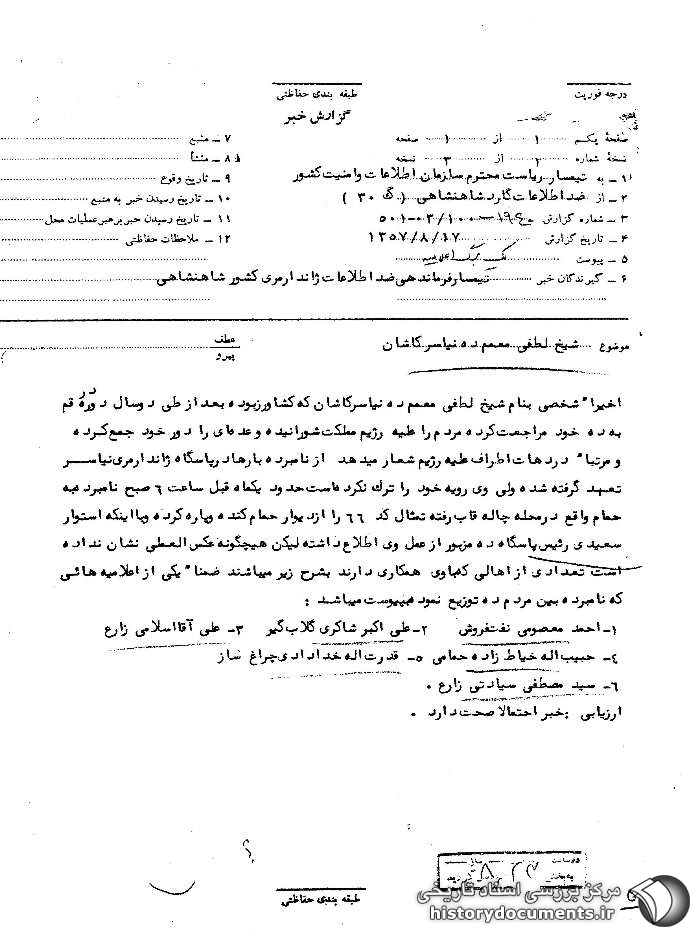 درجه فوریت
طبقه بندی حفاظتی
گزارش خبر
صفحهٔ یکم ۱ از ۱ صفحه
نسخهٔ شماره ۲ از ۳ نسخه
۱ـ به تیمسار ریاست محترم سازمان اطلاعات و امنیت کشور
۲ـ از ضد اطلاعات گارد شاهنشاهی ( گ ۳۰ )
۳ـ شماره گزارش
۴ـ تاریخ گزارش ۱۳۵۷/۸/۱۷
۵ـ پیوست یک برگ اعلامیه
۶ـ گیرندگان خبر تیمسار فرماندهی ضد اطلاعات ژاندارمری کشور شاهنشاهی
۷ـ منبع
۸ـ منشأ
۹ـ تاریخ وقوع
۱۰ـ تاریخ رسیدن خبر به منبع
۱۱ـ تاریخ رسیدن خبر برهبر عملیات محل
۱۲ـ ملاحظات حفاظتی
موضوع شیخ لطفی معمم ده نیاسر کاشان
عطف
پیرو
اخیرا" شخصی بنام شیخ لطفی معمم ده نیاسر کاشان که کشاورز بوده بعد از طی دو سال دوره در قم
به ده خود مراجعت کرده مردم را علیه رژیم مملکت شورانیده و عده‌ای را دور خود جمع کرده
و مرتبا" در دهات اطراف علیه رژیم شعار میدهد از نامبرده بارها در پاسگاه ژاندارمری نیاسر
تعهد گرفته شده ولی وی رویه خود را ترک نکرده است حدود یکماه قبل ساعت ۶ صبح نامبرده به
حمام واقع در محله چاله قاب رفته تمثال کد ۶۶ را از دیوار حمام کنده و پاره کرده و با اینکه استوار
سعیدی رئیس پاسگاه ده مزبور از عمل وی اطلاع داشته لیکن هیچگونه عکس العملی نشان نداده
است تعدادی از اهالی که با وی همکاری دارند بشرح زیر میباشند ضمنا" یکی از اعلامیه هائی
که نامبرده بین مردم ده توزیع نموده به پیوست میباشد :
۱ـ احمد معصومی نفت فروش ۲ـ علی اکبر شاکری گلاب گیر ۳ـ علی آقا اسلامی زارع
۴ـ حبیب اله خیاط زاده حمامی ۵ـ قدرت اله خدادادی چراغ ساز
۶ـ سید مصطفی سیادتی زارع .
ارزیابی : خبر احتمالا صحت دارد .
طبقه بندی حفاظتی
مرکز بررسی اسناد تاریخی
historydocuments.ir